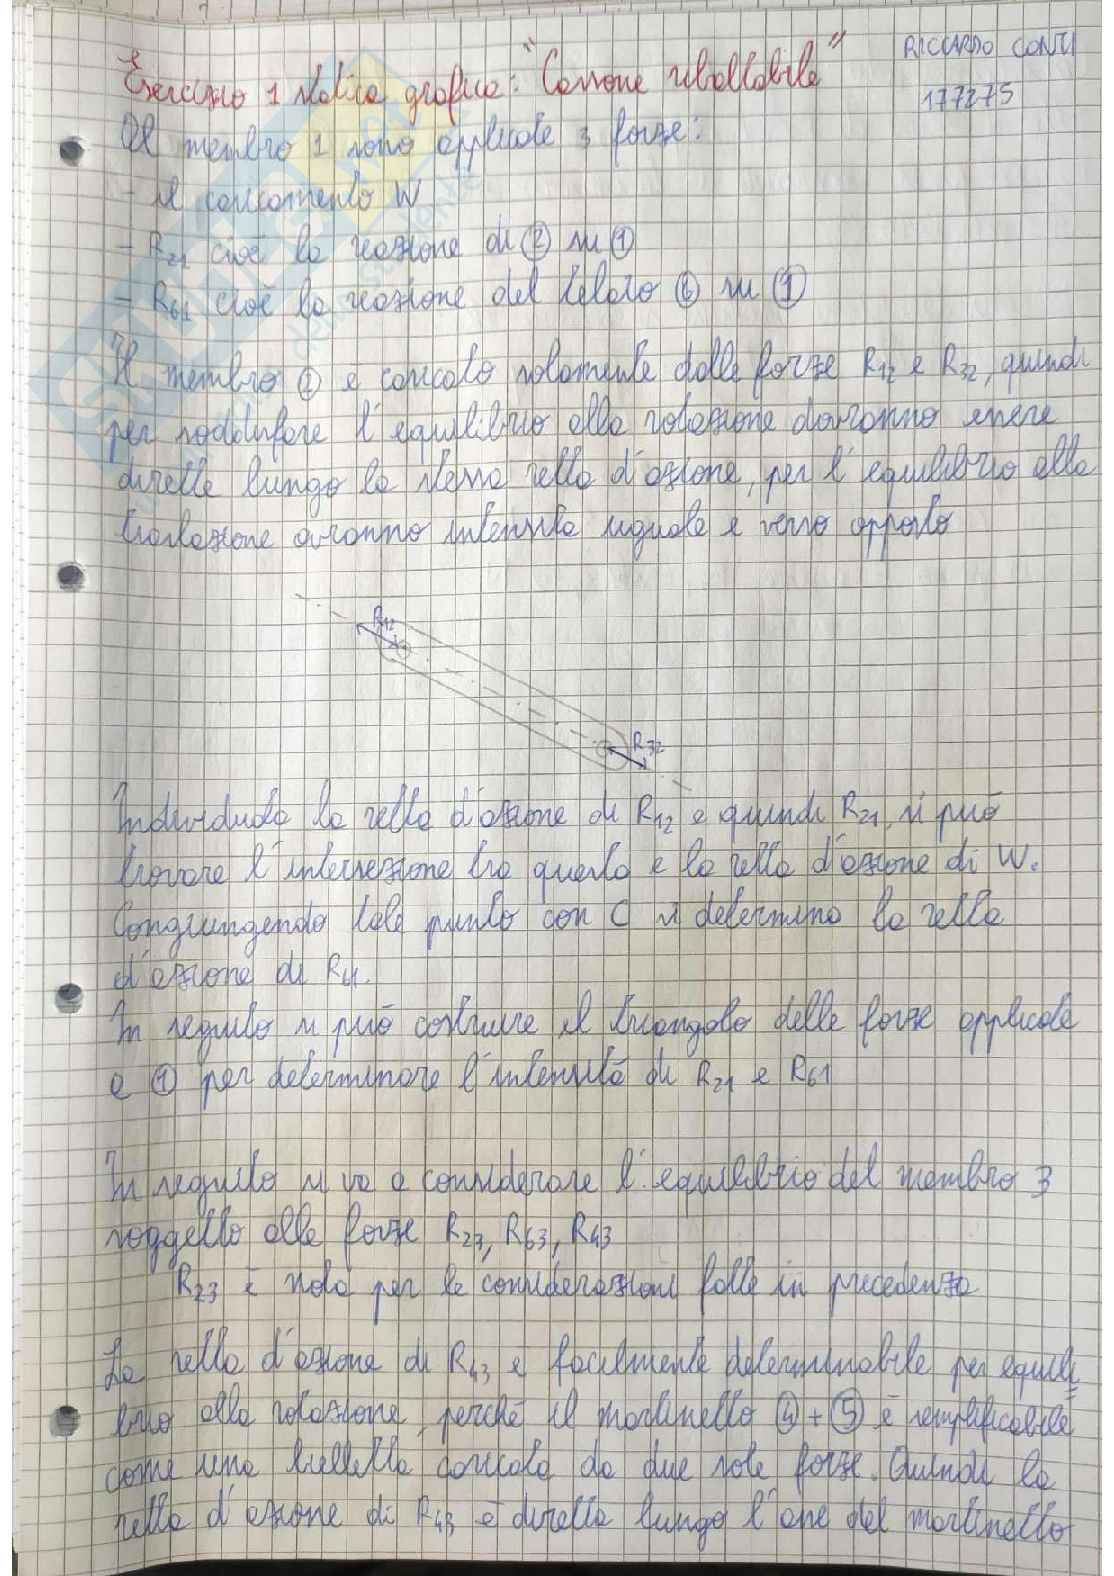 Esercizio 1 statica grafica: "Cassone ribaltabile"
RICCARDO CONTI
177275
Al membro 1 sono applicate 3 forze:
- il caricamento W
- R21 cioè la reazione di ② su ①
- R61 cioè la reazione del telaio ⑥ su ①
Il membro ② è caricato solamente dalle forze R12 e R32, quindi
per soddisfare l'equilibrio alla rotazione dovranno essere
dirette lungo la stessa retta d'azione, per l'equilibrio alla
traslazione avranno intensità uguale e verso opposto
R12
R32
Individuata la retta d'azione di R12 e quindi R21, si può
trovare l'intersezione tra questa e la retta d'azione di W.
Congiungendo tale punto con C si determina la retta
d'azione di
In seguito si può costruire il triangolo delle forze applicate
a ① per determinare l'intensità di R21 e R61
In seguito si va a considerare l'equilibrio del membro 3
soggetto alle forze R23, R63, R43
R23 è nota per le considerazioni fatte in precedenza
La retta d'azione di R43 è facilmente determinabile per equili
brio alla rotazione, perché il martinetto ④+⑤ è semplificabile
come una bielletta caricata da due sole forze. Quindi la
retta d'azione di R43 è diretta lungo l'asse del martinetto